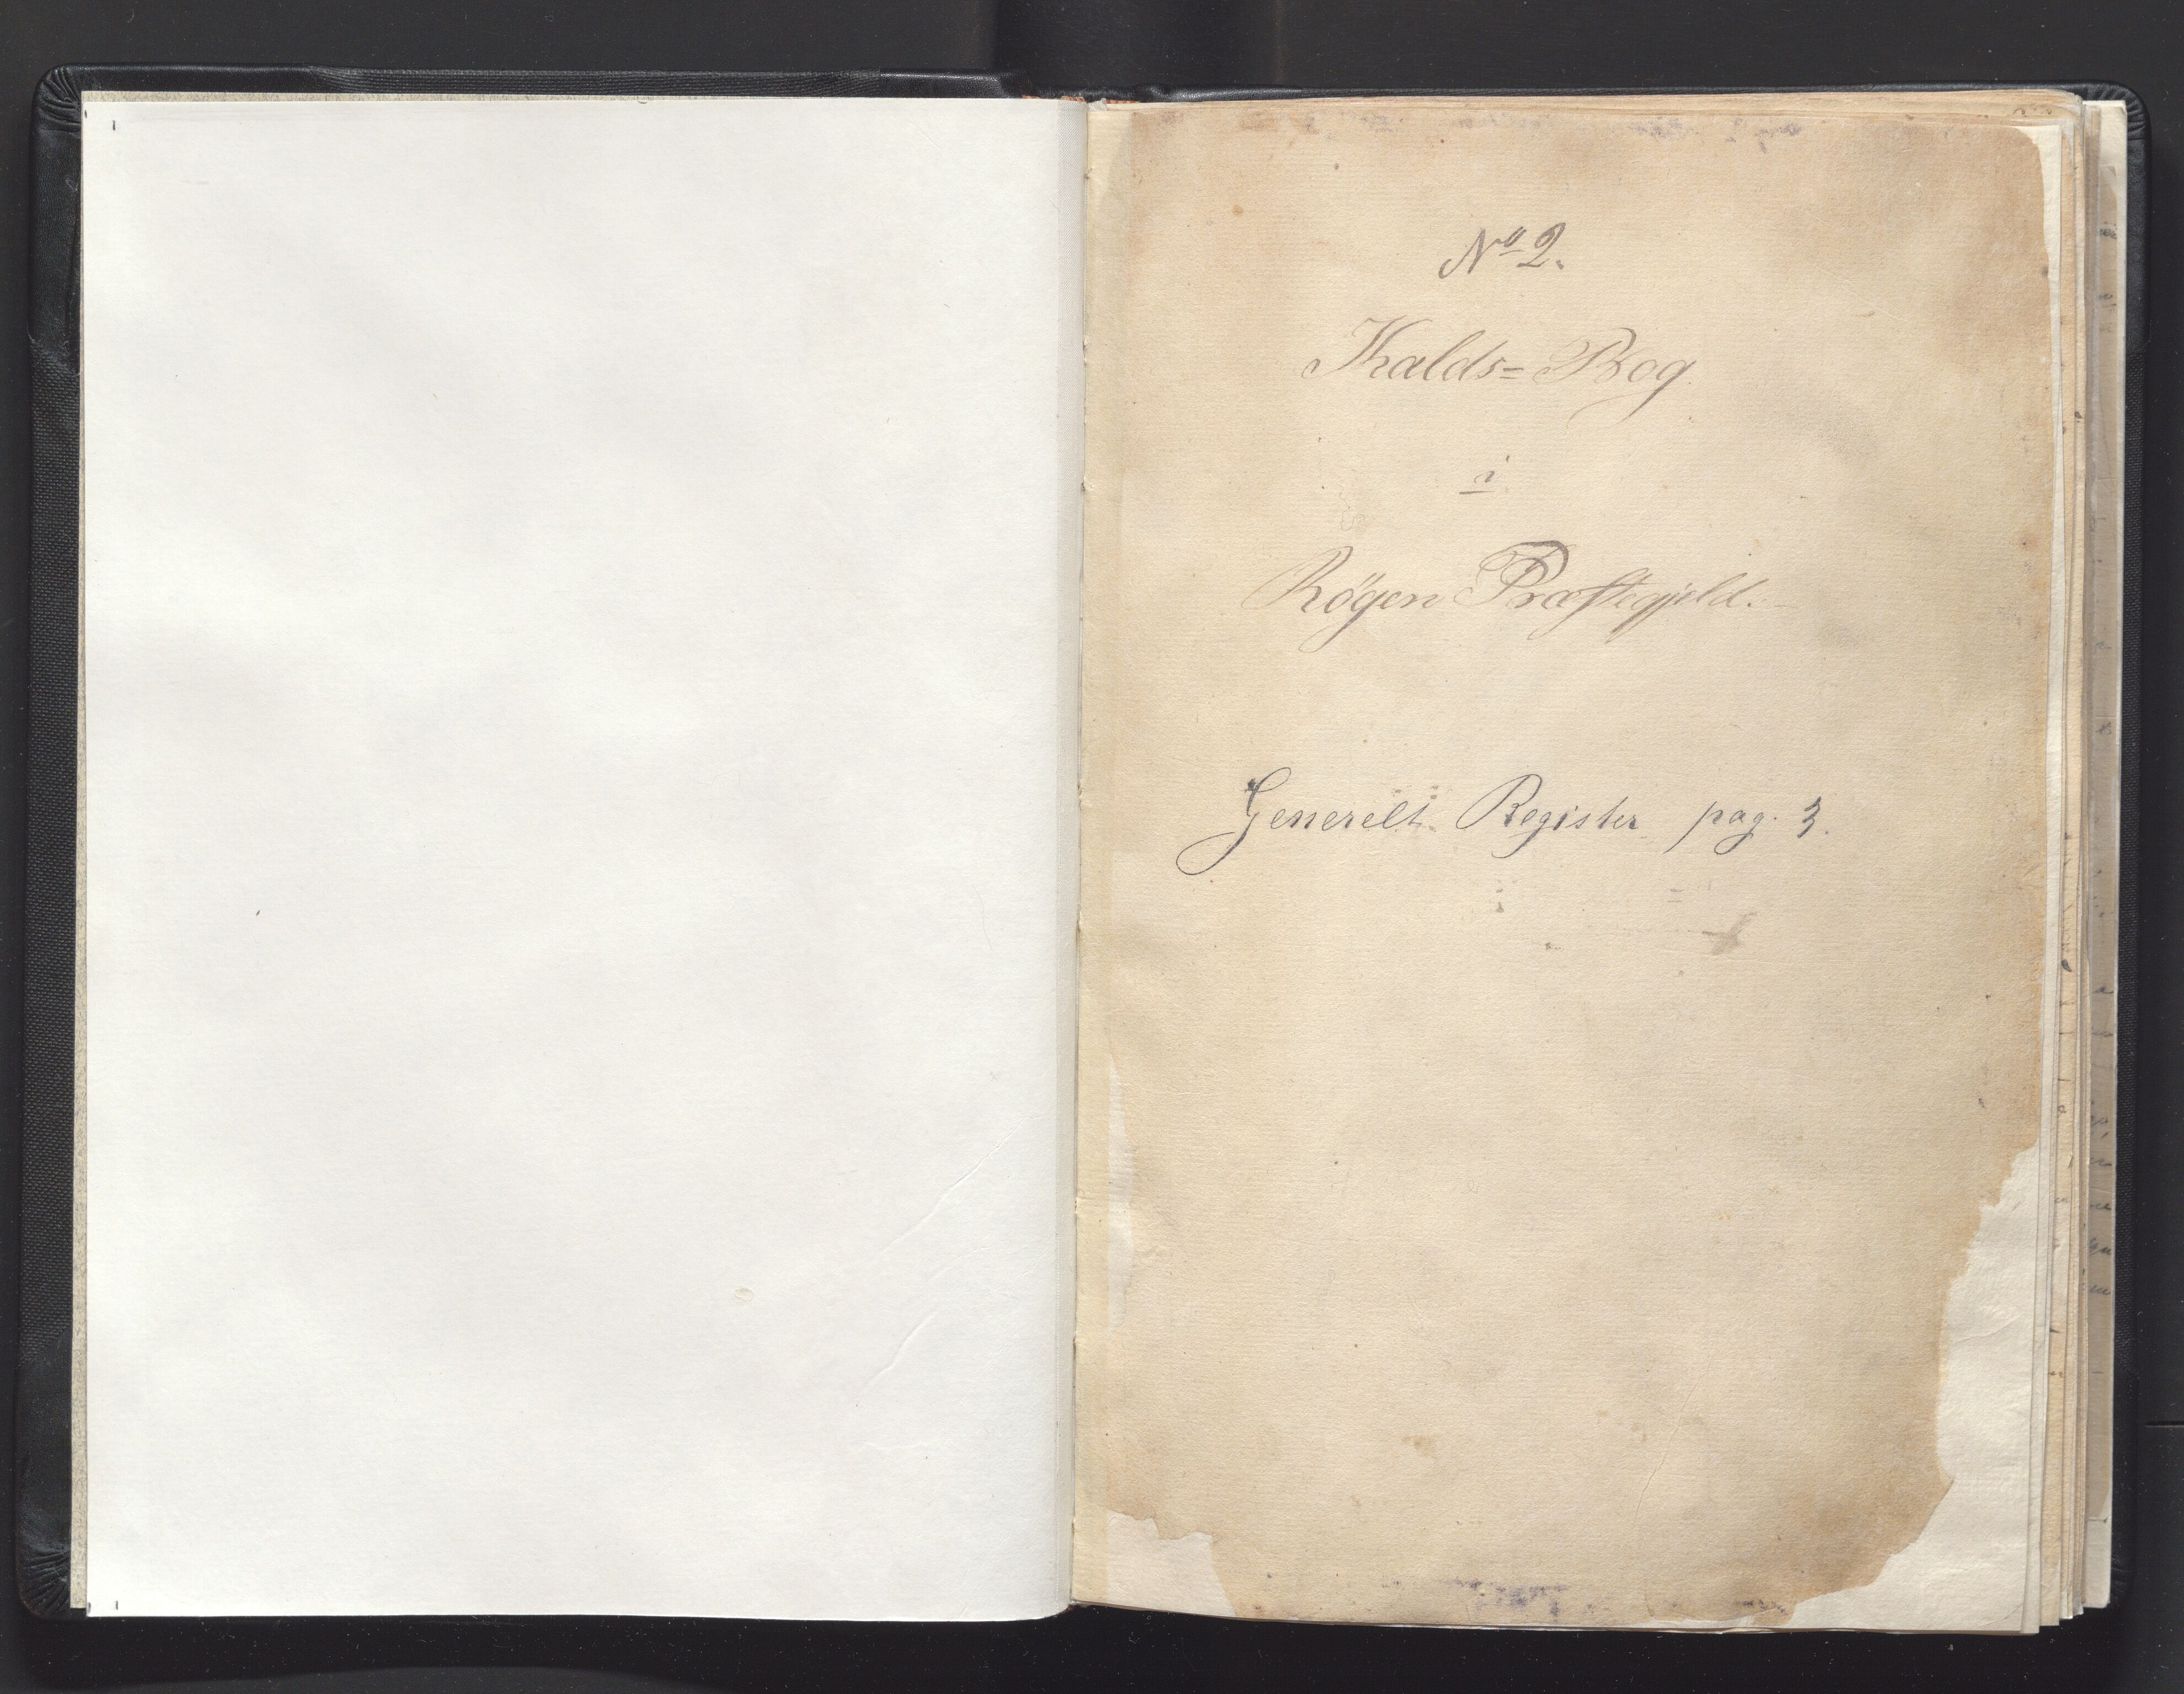 No 2.
Kalds=Bog
i
Røgen Præstegjeld.
Generelt Register pag. 3.